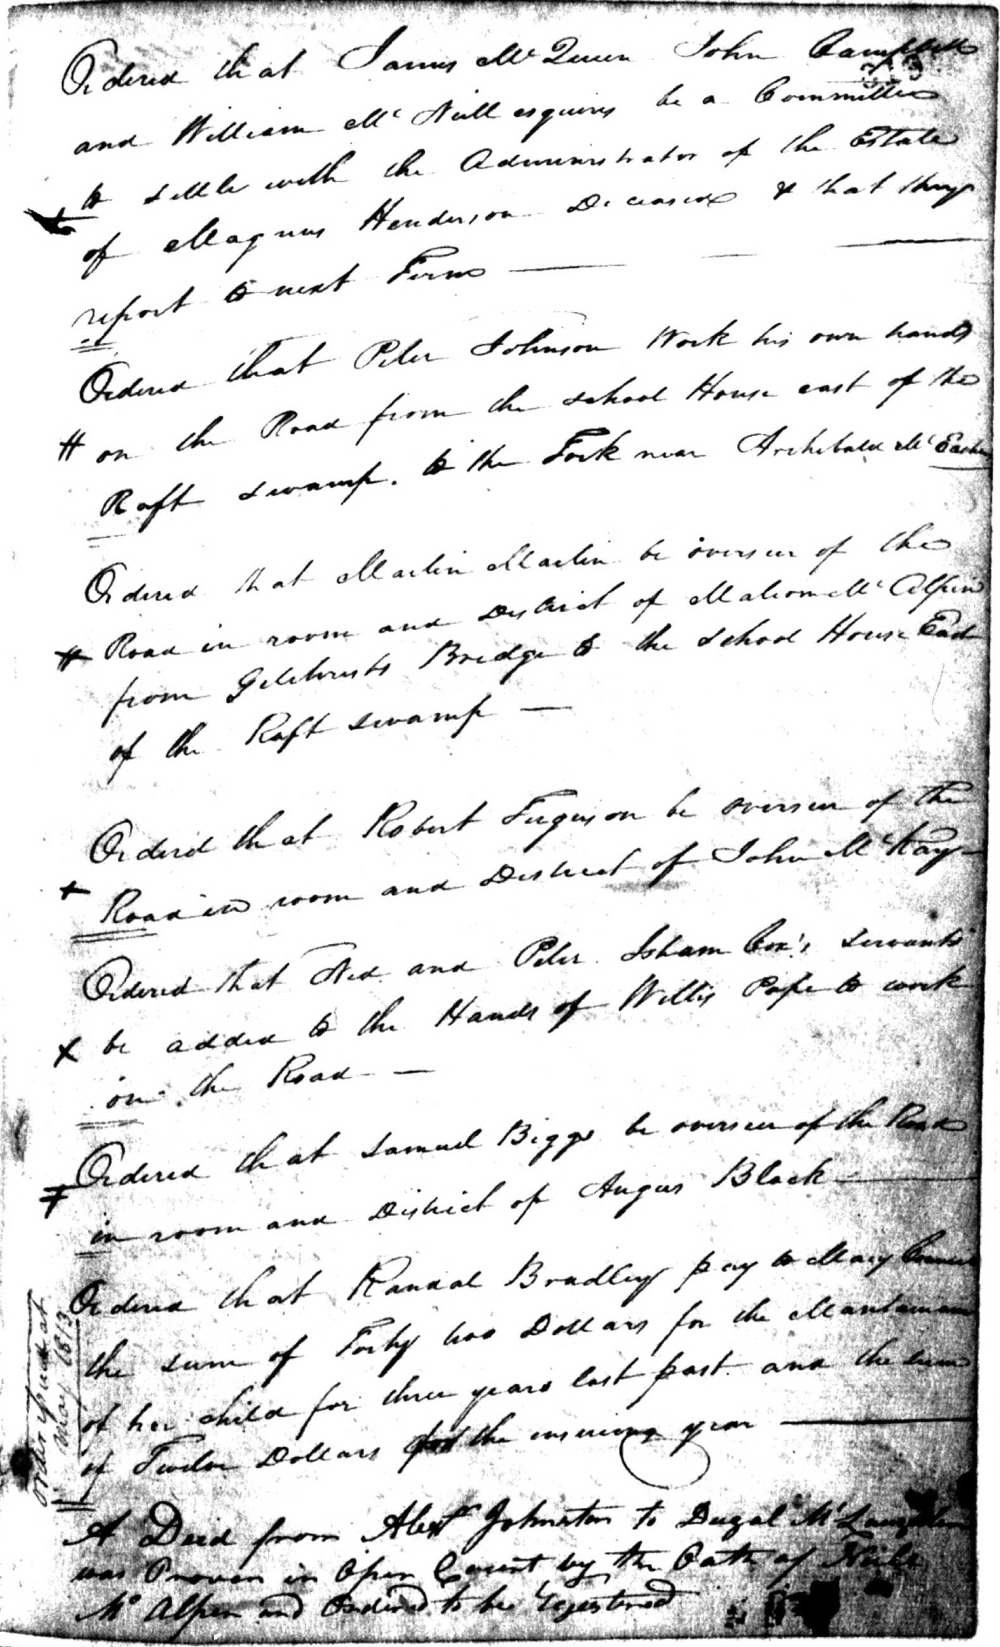 Ordered that James McQueen John Campbell
and William McNeill esquires be a Committee
to settle with the Administrator of the Estate
of Magnus Henderson Deceased & that they
report to next Term
Ordered that Peter Johnson Work his own hands
on the Road from the school House east of the
Raft swamp. to the Fork near Archibald McEachn
Ordered that Martin Martin be overseer of the
Road in room and District of Malcom McAlpin
from Gilchrists Bridge to the school House East
of the Raft swamp
Orderd that Robert Ferguson be overseer of the
Road in room and District of John McKay
Ordered that Ned and Peter Isham Cox's servants
be added to the Hands of Willis Pope to work
on the Road
Ordered that Samuel Biggs be overseer of the Road
in room and District of Angus Black
Ordered that Randal Bradley pay to Mary
the sum of Forty two Dollars for the Mantainance
of her child for three years last past and the sum
of Twelve Dollars for the ensuing year
order issued at
May 1813
A Deed from Alexr Johnston to Dugal McLauchlin
was Proven in Open Court by the Oath of Neill
McAlpen and Ordered to be Registered